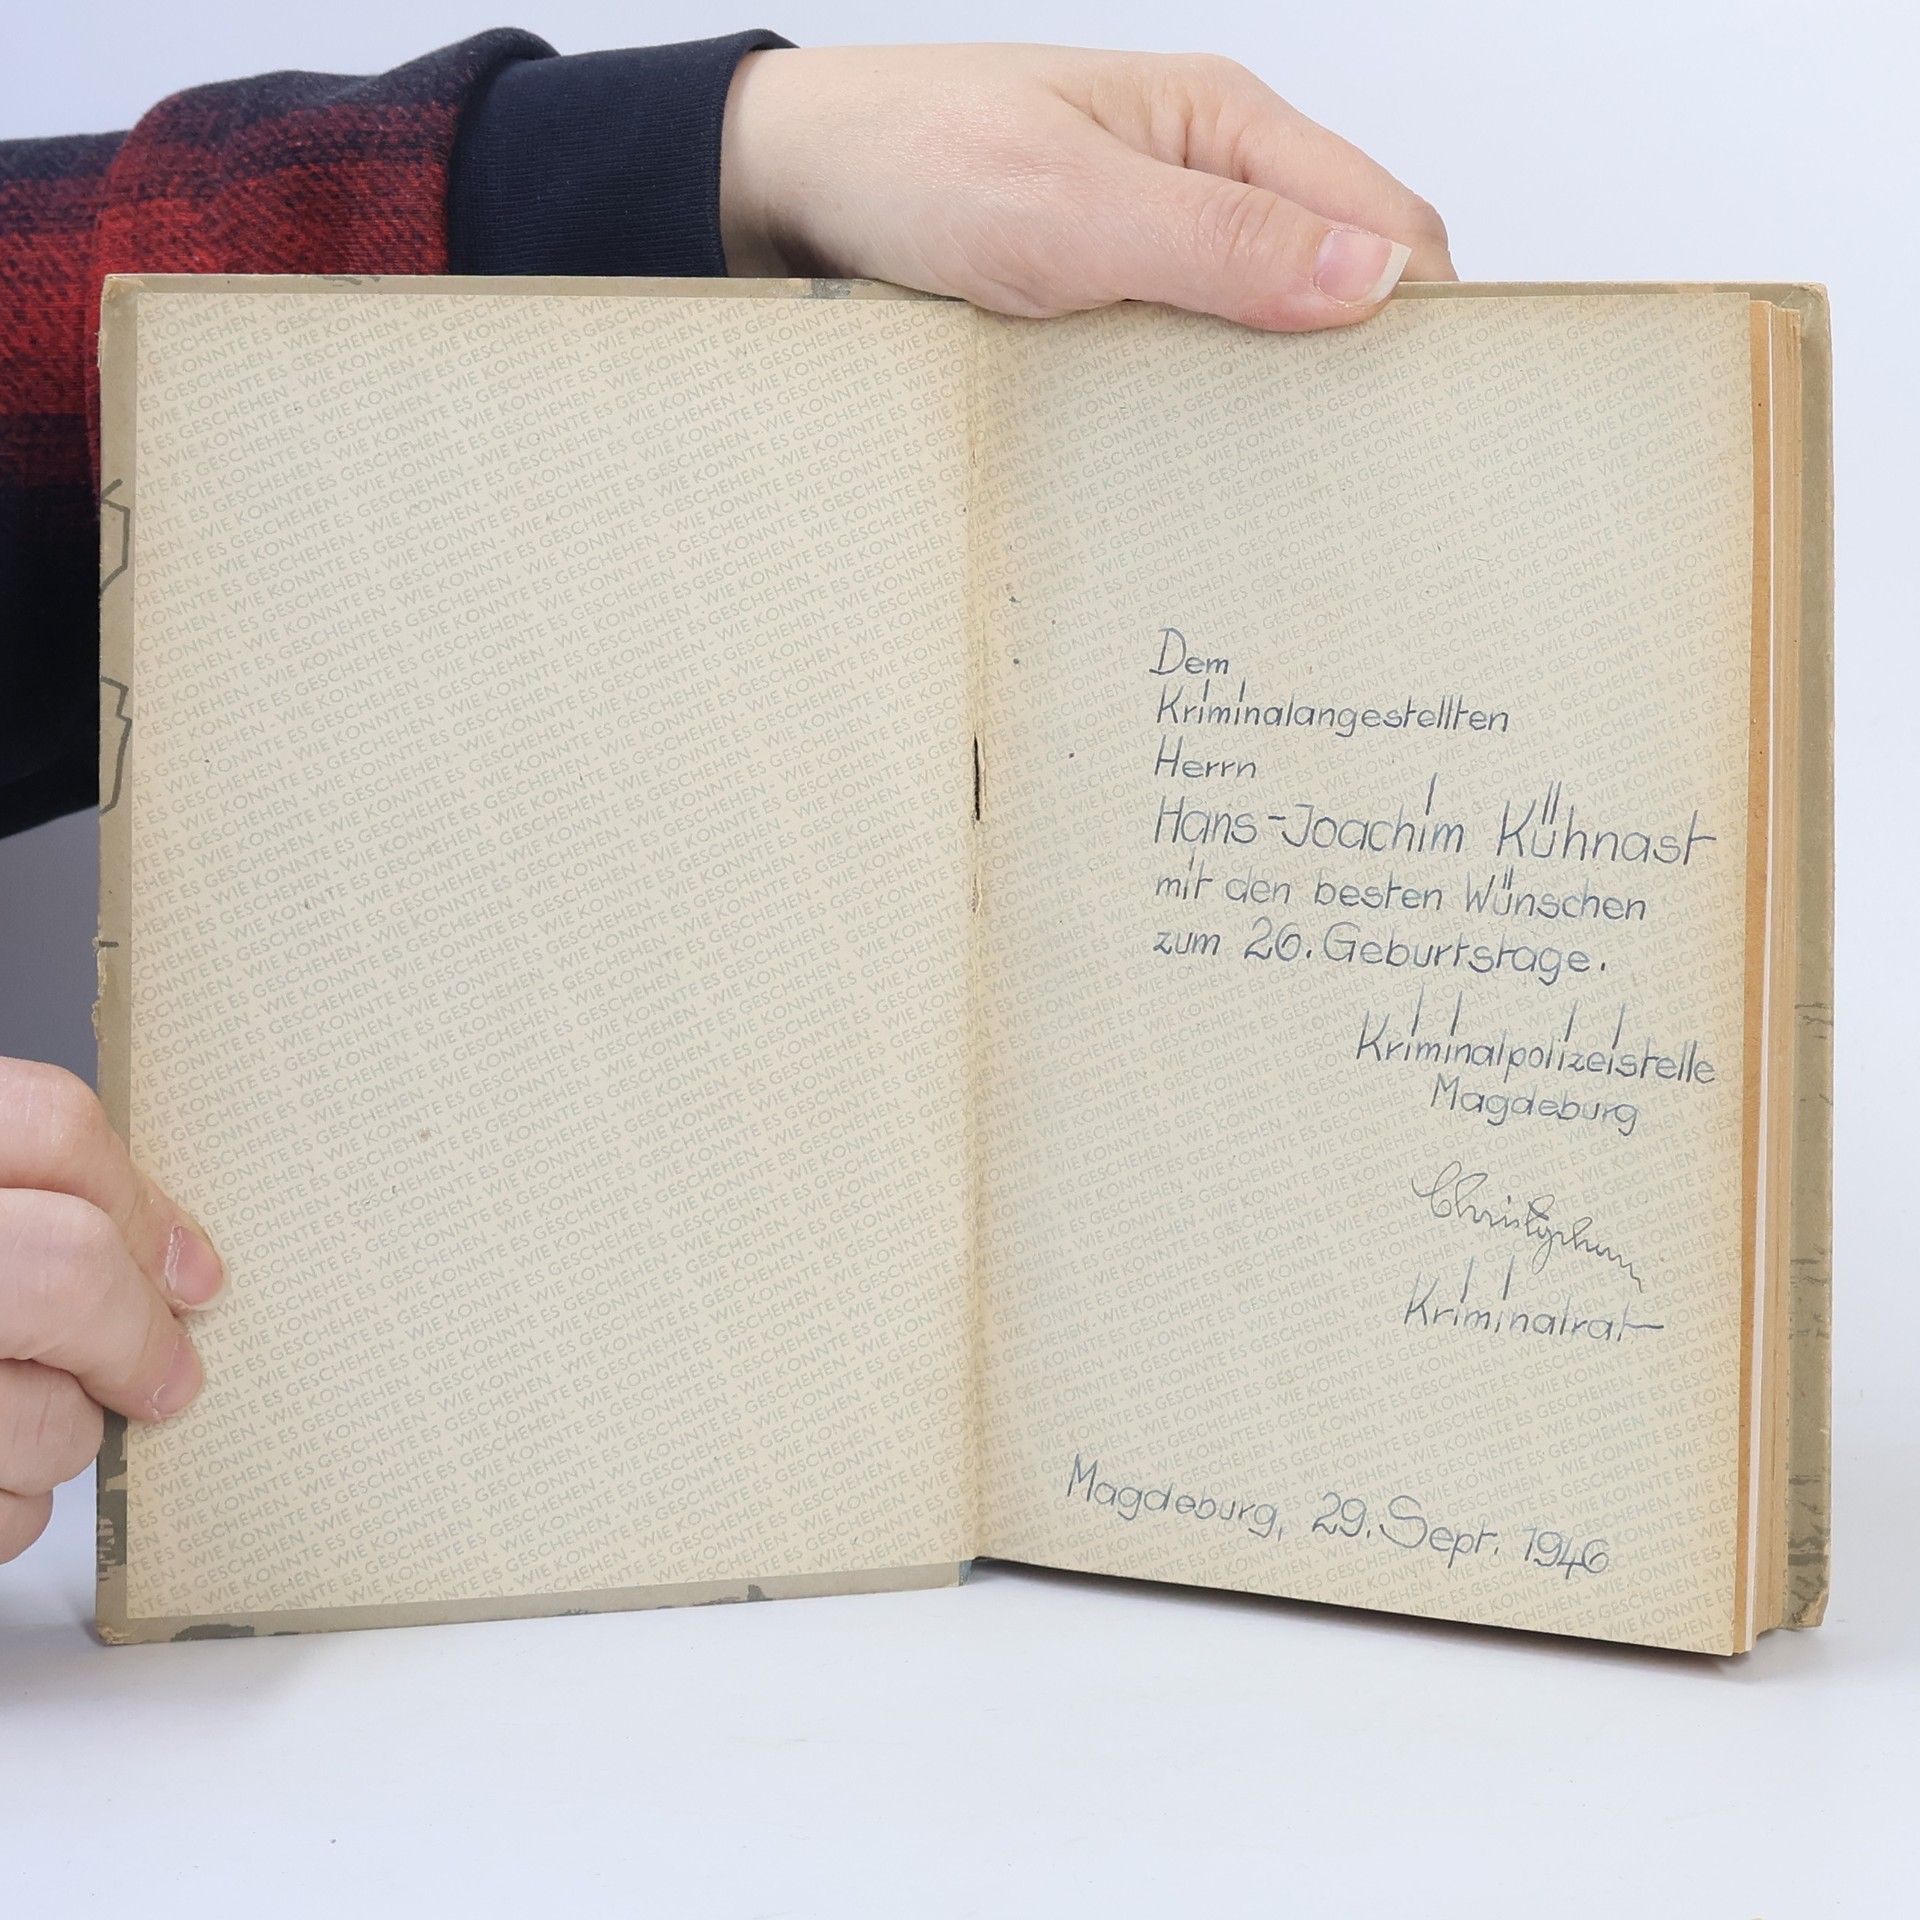 WIE KONNTE ES GESCHEHEN - WIE KONNTE ES GESCHEHEN - WIE KONNTE ES GESCHEHEN
Dem
Kriminalangestellten
Herrn
Hans-Joachim Kühnast
mit den besten Wünschen
zum 26. Geburtstage.
Kriminalpolizeistelle
Magdeburg
Kriminalrat
Magdeburg, 29. Sept. 1946